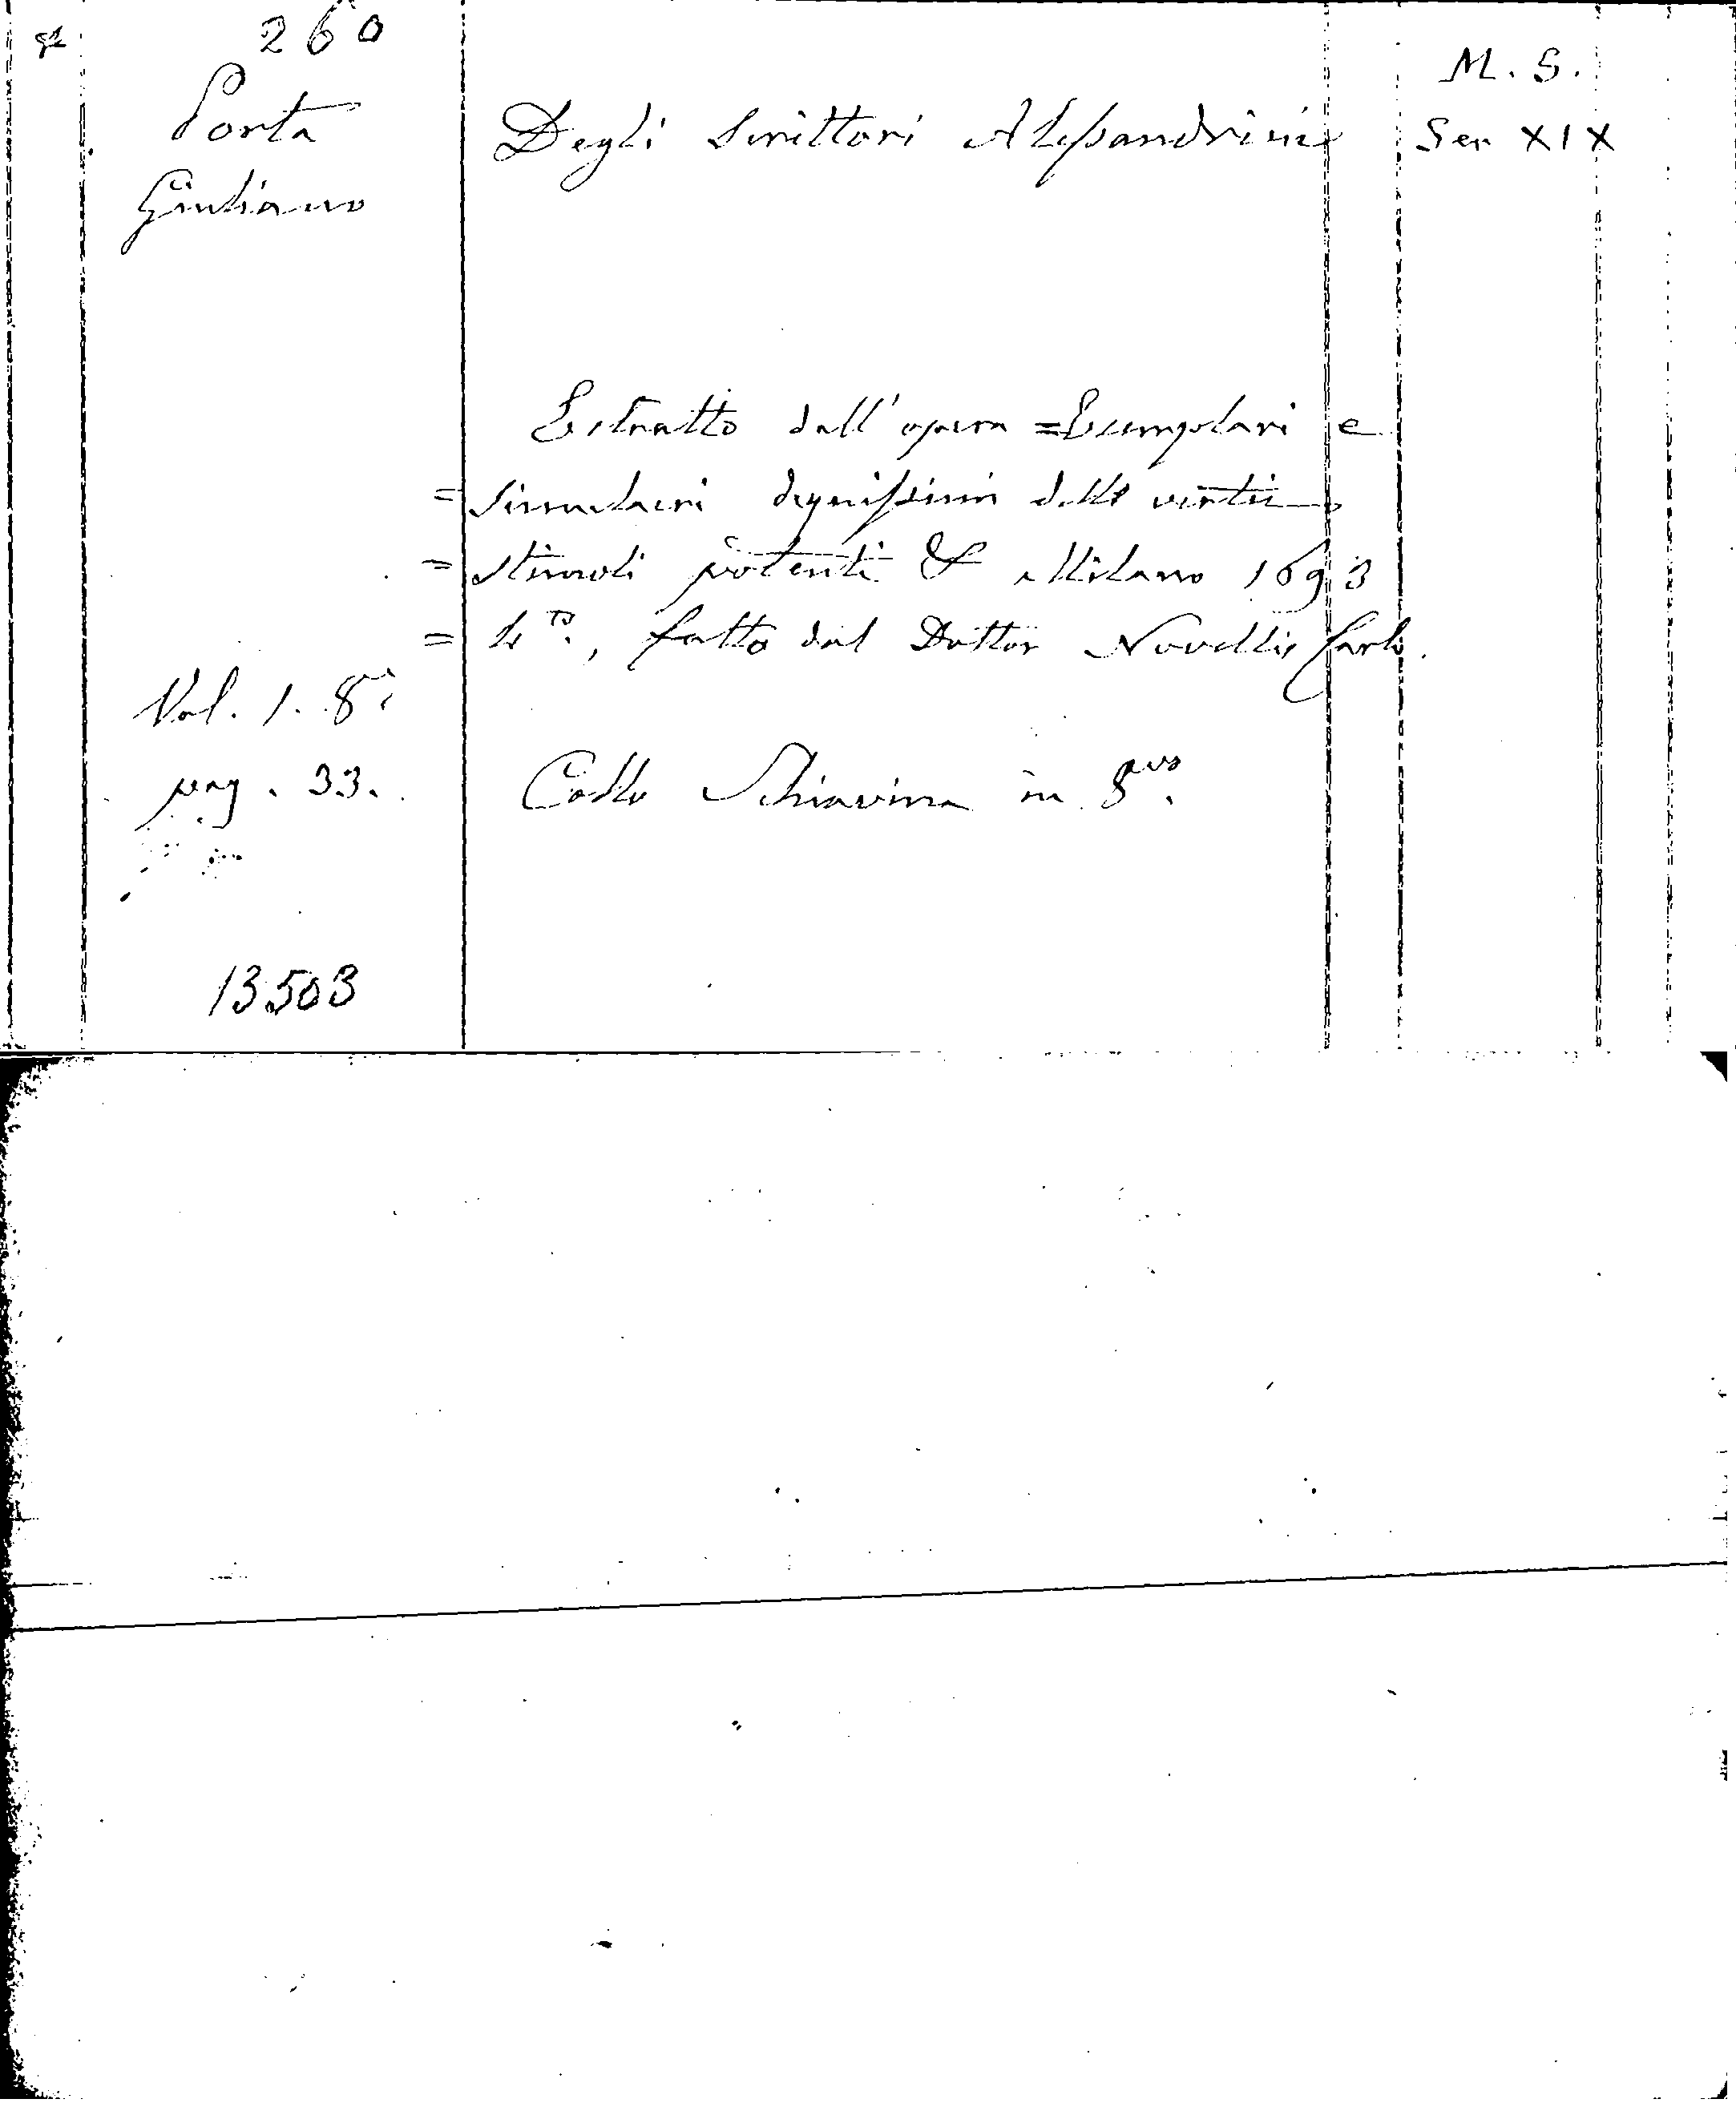 260
Porta
Giuliano
Degli Scrittori Alessandrini
M. S.
Sec XIX
Estratto dall'opera = Esemplari e
= Simulacri degnissimi delle virtù
= stimoli potenti & Milano 1693
= 4to., fatto dal Dottor Novellis Carlo.
Vol. 1. 8°
pag. 33.
Collo Schiavina in 8vo.
13503